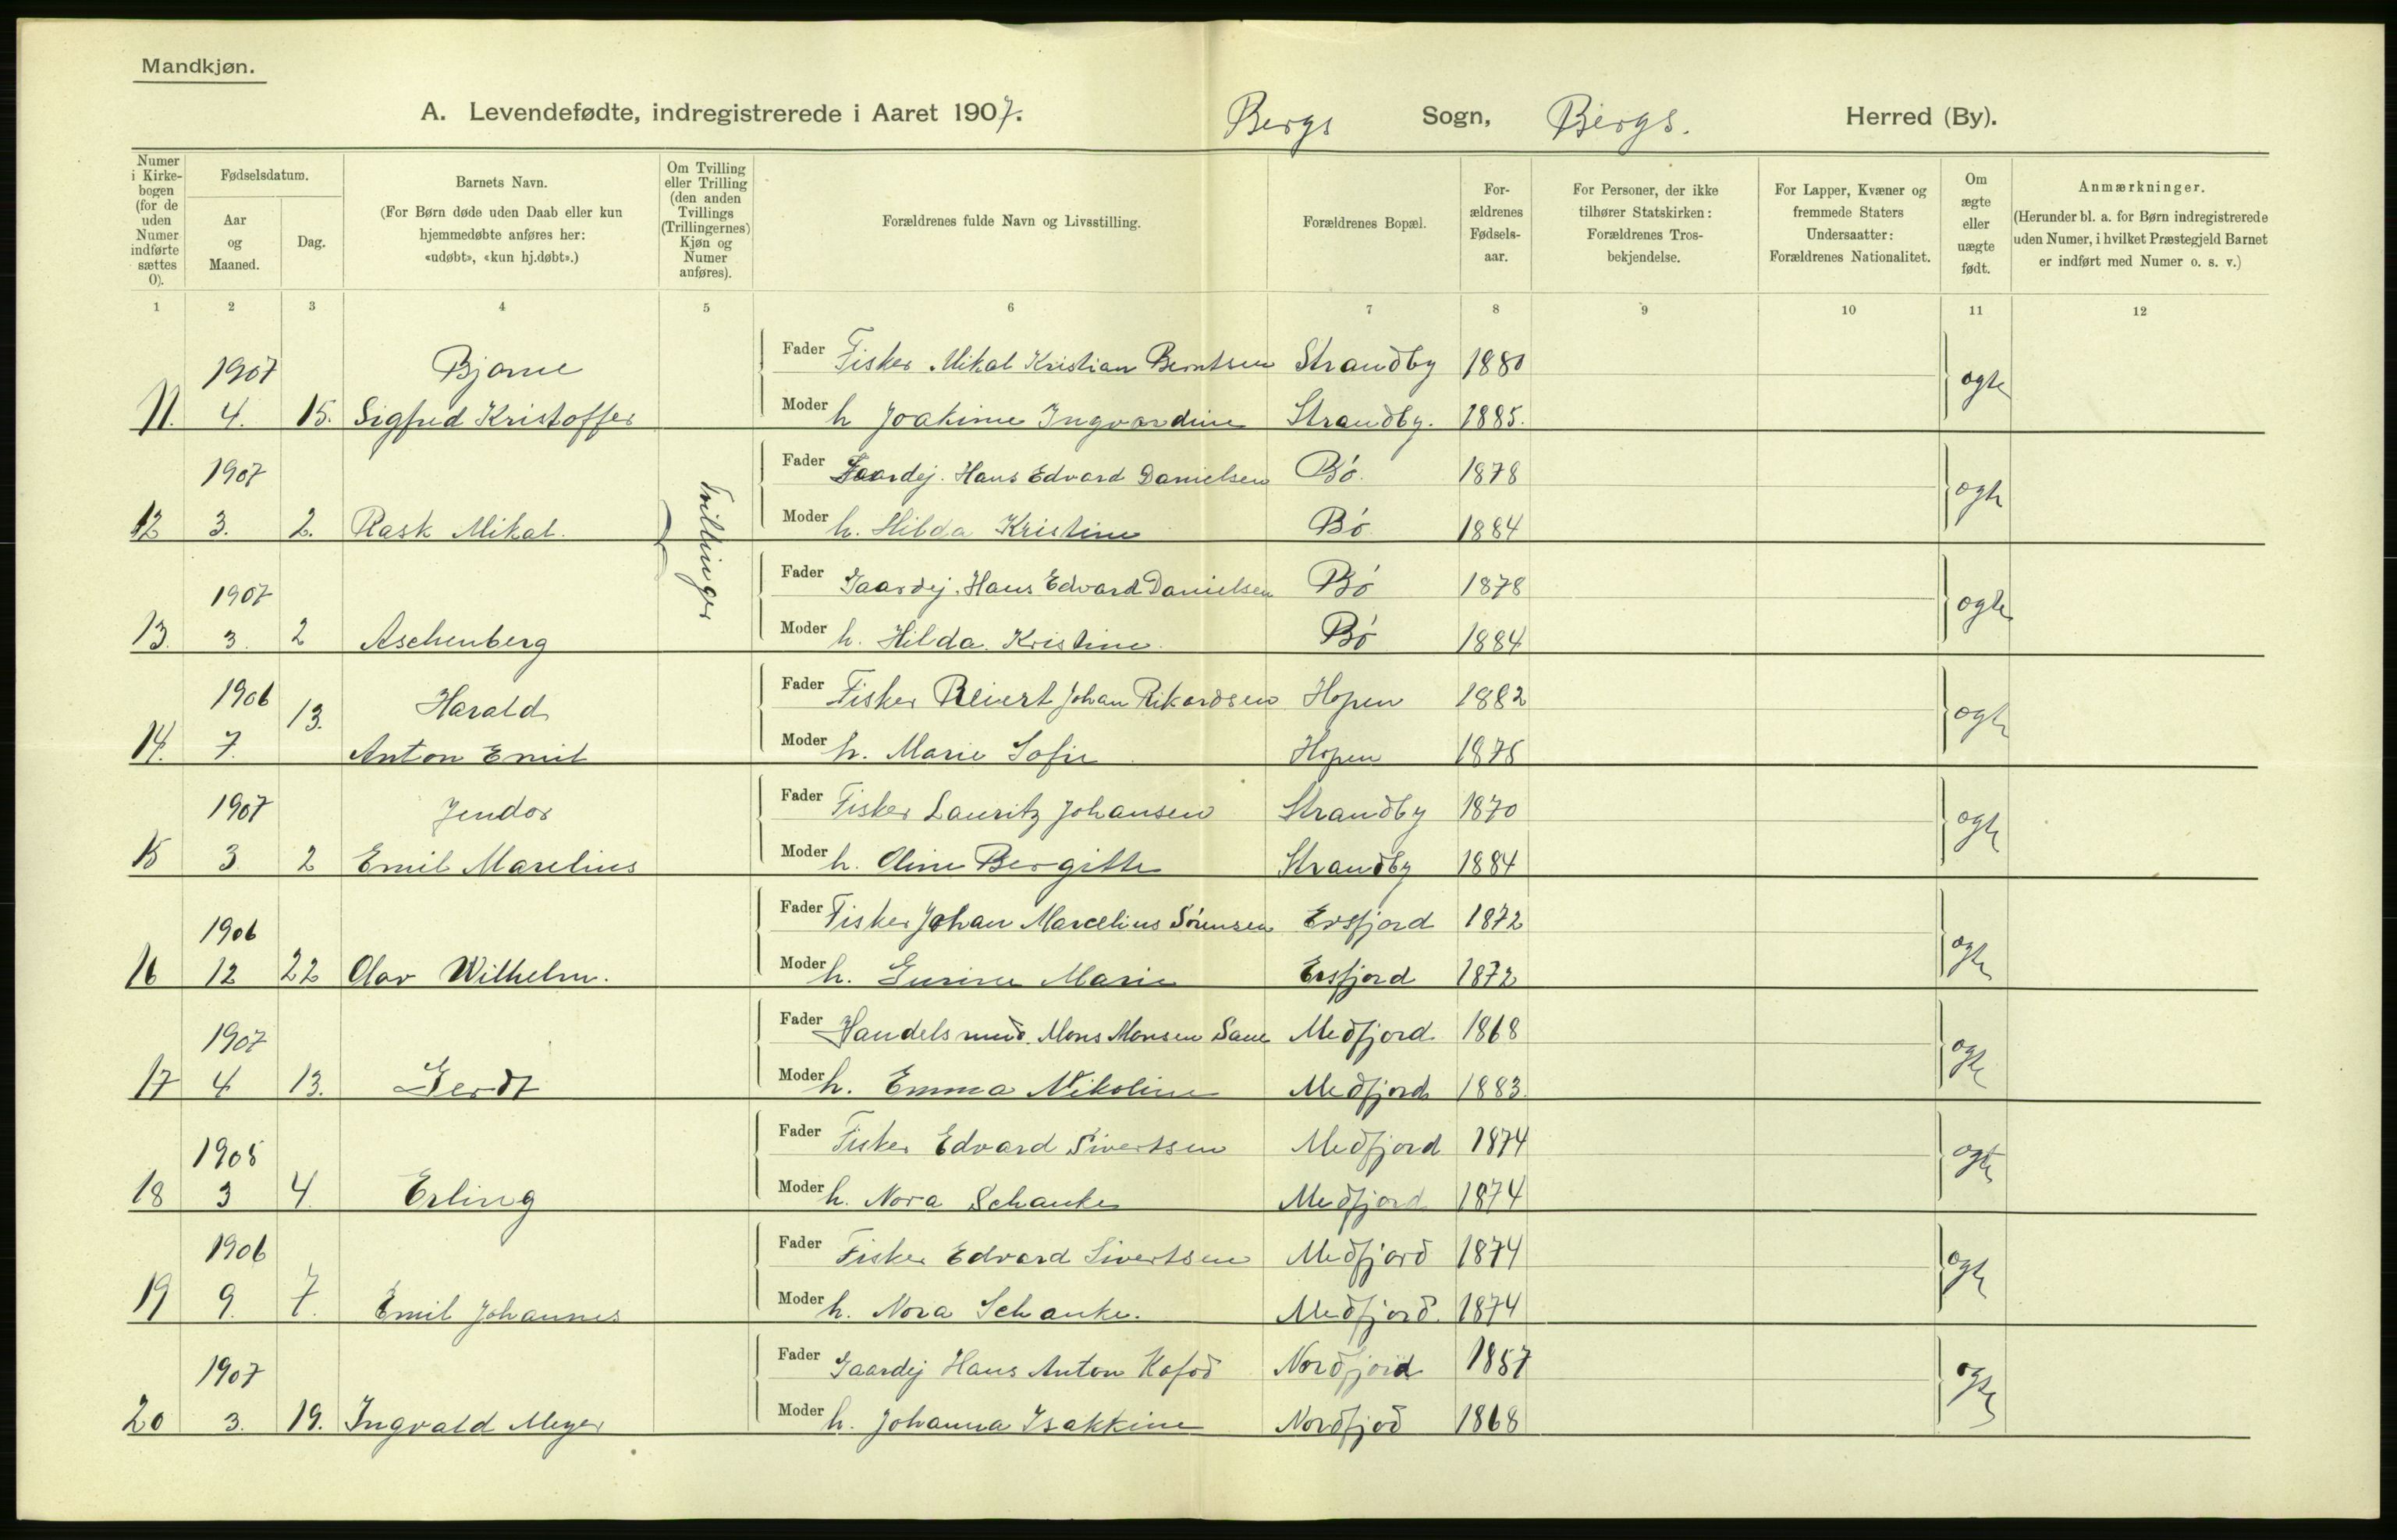 Mandkjøn.
A. Levendefødte, indregistrerede i Aaret 1907. Bergs Sogn, Bergs. Herred (By).
Numer i Kirke-bogen (for de uden Numer indførte sættes 0).
Fødselsdatum.
Aar og Maaned.
Dag.
Barnets Navn.
(For Børn døde uden Daab eller kun hjemmedøbte anføres her: «udøbt», «kun hj.døbt».)
Om Tvilling eller Trilling (den anden Tvillings (Trillingernes) Kjøn og Numer anføres).
Forældrenes fulde Navn og Livsstilling.
Forældrenes Bopæl.
For-ældrenes Fødsels-aar.
For Personer, der ikke tilhører Statskirken: Forældrenes Tros-bekjendelse.
For Lapper, Kvæner og fremmede Staters Undersaatter: Forældrenes Nationalitet.
Om ægte eller uægte født.
Anmærkninger.
(Herunder bl. a. for Børn indregistrerede uden Numer, i hvilket Præstegjeld Barnet er indført med Numer o. s. v.)
1 2 3 4 5 6 7 8 9 10 11 12
1907 Bjarne Fader Fisker Mikal Kristian Berntsen Strandby 1880 ægte
11. 4. 15. Sigfred Kristoffer Moder h Joakime Ingvardine Strandby. 1885.
1907 Fader Gaardej. Hans Edvard Danielsen Bø. 1878 ægte
12 3. 2. Rask Mikal. Tvillinger Moder h. Hilda Kristine Bø 1884
1907 Fader Gaardej. Hans Edvard Danielsen Bø 1878 ægte
13. 3. 2 Aschenberg Moder h. Hilda Kristine Bø 1884
1906 13. Harald Fader Fisker Reiert Johan Rikardsen Hopen 1882 ægte
14. 7. Anton Emil Moder h. Marie Sofie Hopen 1875
1907 Jendor Fader Fisker Lauritz Johansen Strandby 1870 ægte
15 3 2 Emil Marelius Moder h. Oline Bergitte Strandby 1884
1906 Fader Fisker Johan Marcelius Sørensen Ersfjord 1872 ægte
16 12 22 Olav Wilhelm. Moder h. Gurine Marie Ersfjord 1872
1907 Fader Handelsmnd. Mons Monsen Sane Medfjord 1868 ægte
17 4 13. Gerdt Moder h. Emma Nikoline Medfjord 1883.
1905 Fader Fisker Edvard Sivertsen Medfjord 1874 ægte
18 3 4. Erling Moder h. Nora Schanke Medfjord 1874
1906 Fader Fisker Edvard Sivertsen Medfjord 1874 ægte
19 9. 7. Emil Johannes Moder h. Nora Schanke. Medfjord. 1874
1907 Fader Gaardej Hans Anton Kofod Nordfjord 1857 ægte
20 3. 19. Ingvald Meyer Moder h. Johanna Isakkine Nordfjod 1868